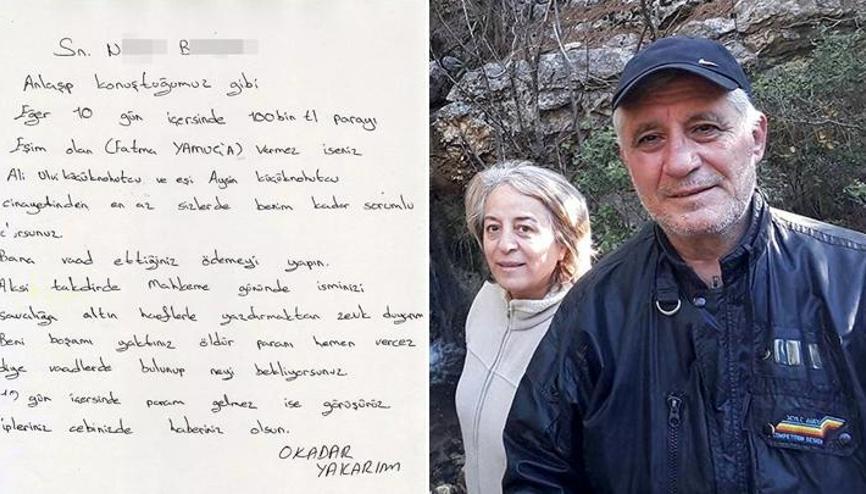 Sn. N B
Anlaşıp konuştuğumuz gibi
Eğer 10 gün içersinde 100bin tl parayı
Eşim olan (Fatma YAMUÇİA) vermez iseniz
Ali Ulvi küçüknohutcu ve eşi Ayşin küçüknohutcu
cinayetinden en az sizlerde benim kadar sorumlu
'ursunuz.
Bana vaad ettiğiniz ödemeyi yapın.
Aksi takdirde Mahkeme gününde isminizi
savcılığa altın harflerle yazdırmaktan zevk duyarım
Beni boşamı yaktınız öldür paranı hemen vercez
diye vaadlerde bulunup neyi bekliyorsunuz
10 gün içersinde param gelmez ise görüşürüz
ipleriniz cebinizde haberiniz olsun.
OKADAR
YAKARIM
COMPETITION DESIGN